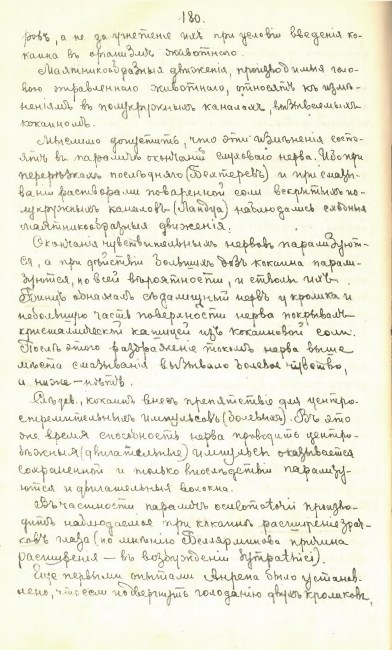 180.
ровъ, а не до учетенiе ихъ при условiи введенiя ко-
каина въ организмъ животнаго.
Маятникообразныя движенiя, производимыя голо-
вою отравленнаго животнаго, относятъ къ измѣ-
ненiямъ въ полукружныхъ каналахъ, вызываемымъ
кокаиномъ.
Мыслимо допустить, что эти измѣненiя состо-
ятъ въ параличѣ окончанiй слуховаго нерва. Ибо при
перерѣзкахъ послѣдняго (Бехтеревъ) и при смазы-
ванiи растворами поваренной соли вскрытыхъ по-
лукружныхъ каналовъ (Ландуа) наблюдались сходныя
маятникообразныя движенiя.
Окончанiя чувствительныхъ нервовъ парализуют-
ся, а при дѣйствiи большихъ дозъ кокаина парали-
зуются, по всей вѣроятности, и стволы ихъ.
обнажалъ сѣдалищный нервъ у кролика и
небольшую часть поверхности нерва покрывалъ
кристаллической кашицей изъ кокаиновой соли.
Послѣ этого раздраженiе токомъ нерва выше
мѣста смазыванiя вызывало болевое чувство,
а ниже — нѣтъ.
Слѣдов., кокаинъ внесъ препятствiе для центро-
стремительныхъ импульсовъ (болевыхъ). Въ это
же время способность нерва проводить центро-
бѣжныя (двигательные) импульсы оказывается
сохраненной и только впослѣдствiи парализу-
ются и двигательныя волокна.
Въ частности параличъ oculomotorii произво-
дитъ наблюдаемое при кокаинѣ расширенiе зрач-
ковъ глаза (по мнѣнiю Беллярминова причина
расширенiя — въ возбужденiи Sympathici).
Еще первыми опытами Анрепа было установ-
лено, что если подвергнуть голоданiю двухъ кроликовъ,